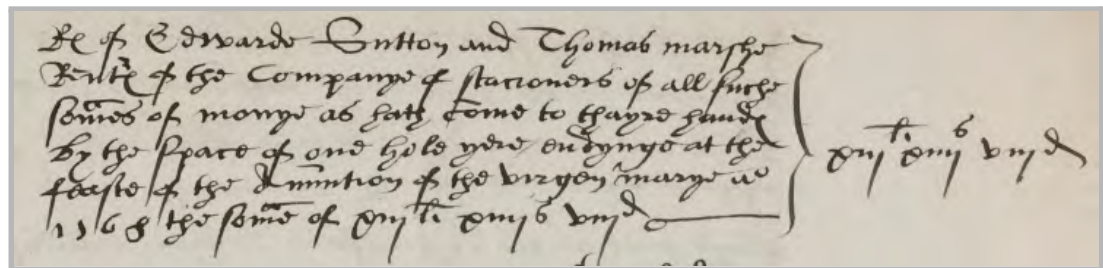 Re of Edwarde Sutton and Thomas marshe
Rentr of the Companye of stacioners of all suche
somes of monye as hath come to thayre handes
by the space of one hole yere endynge at the
feaste of the Anunction of the virgen marye ao
1168 the some of xiij li xiiij s viij d
xiij li xiiij s viij d